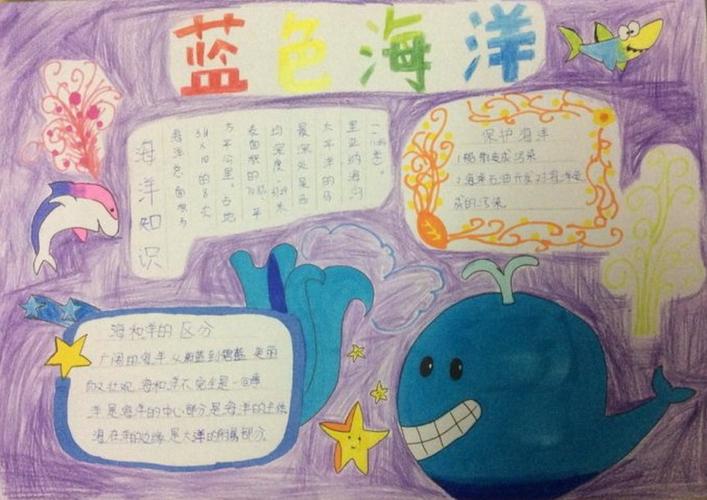 蓝色海洋
海洋知识
海洋总面积为
3.4×10的8次
方平公里，占地
表面积的70%，平
均深度
最深处是西
太平洋的马
里亚纳海沟
保护海洋
1船舶造成污染
2海底石油开发对海洋造
成的污染
海和洋的区分
广阔的海洋从蔚蓝到碧蓝 美丽
而又壮观 海和洋不完全是一回事
洋是海洋的中心部分是海洋的主体
海在洋的边缘是大洋的附属部分